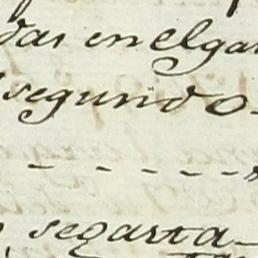 das en el gas
segundo-
- - - - - -
segasta-